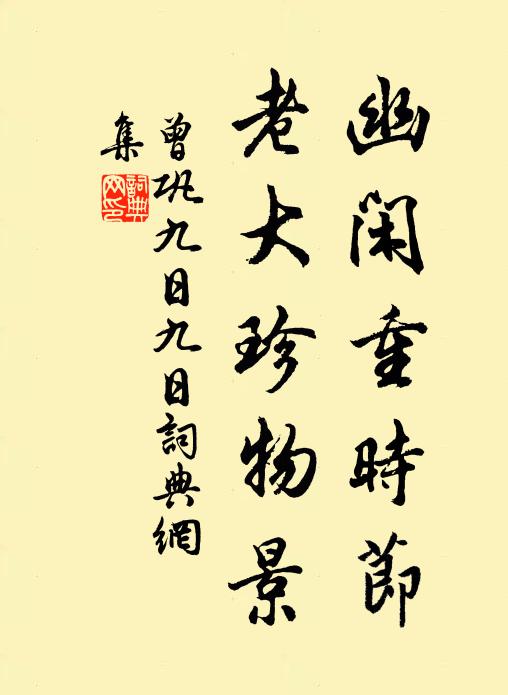 幽閑重時節
老大珍物景
曾巩九日九日詞典網
集
詞典網印